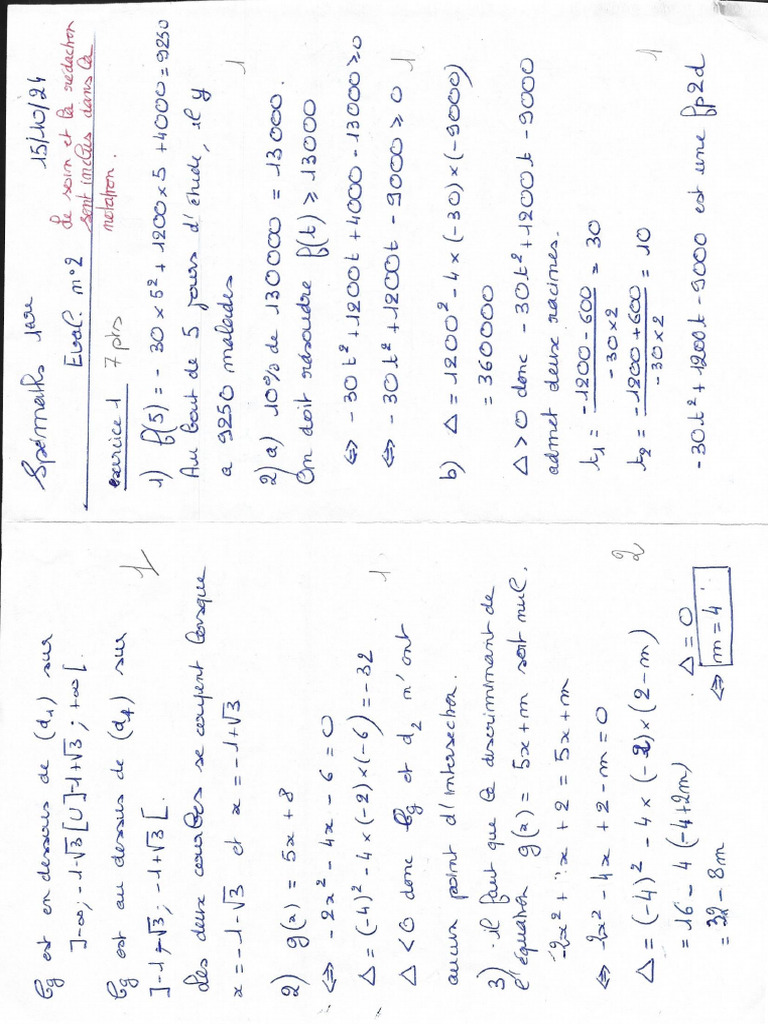 Spémaths 1ère 15/10/24
Eval. n°2
Le soin et la rédaction
sont inclus dans la
notation.
exercice 1 7 pts
1) f(5) = -30×5²+1200×5+4000=9250
Au bout de 5 jours d'étude, il y
a 9250 malades 1
2) a) 10% de 130000 = 13000.
On doit résoudre f(t) ≥ 13000
⇔ -30t²+1200t+4000-13000≥0
⇔ -30t²+1200t-9000≥0 1
b) Δ = 1200²-4×(-30)×(-9000)
= 360000
Δ>0 donc -30t²+1200t-9000
admet deux racines.
t₁ = (-1200-600)/(-30×2) = 30
t₂ = (-1200+600)/(-30×2) = 10 1
-30t²+1200t-9000 est une fp2d
Cg est en dessous de (d₁) sur
]-∞;-1-√3[U]-1+√3;+∞[.
Cg est au dessus de sur
]-1-√3;-1+√3[. 1
Les deux courbes se coupent lorsque
x=-1-√3 et x=-1+√3
2) g(x) = 5x+8
⇔ -2x²-4x-6=0
Δ=(-4)²-4×(-2)×(-6)=-32
Δ<0 donc Cg et d₂ n'ont 1
aucun point d'intersection.
3) il faut que le discriminant de
l'équation g(x) = 5x+m soit nul.
-2x²+x+2=5x+m
⇔ -2x²-4x+2-m=0
Δ=(-4)²-4×(-2)×(2-m) 2
=16-4(-4+2m)
=32-8m
Δ=0
⇔ m=4